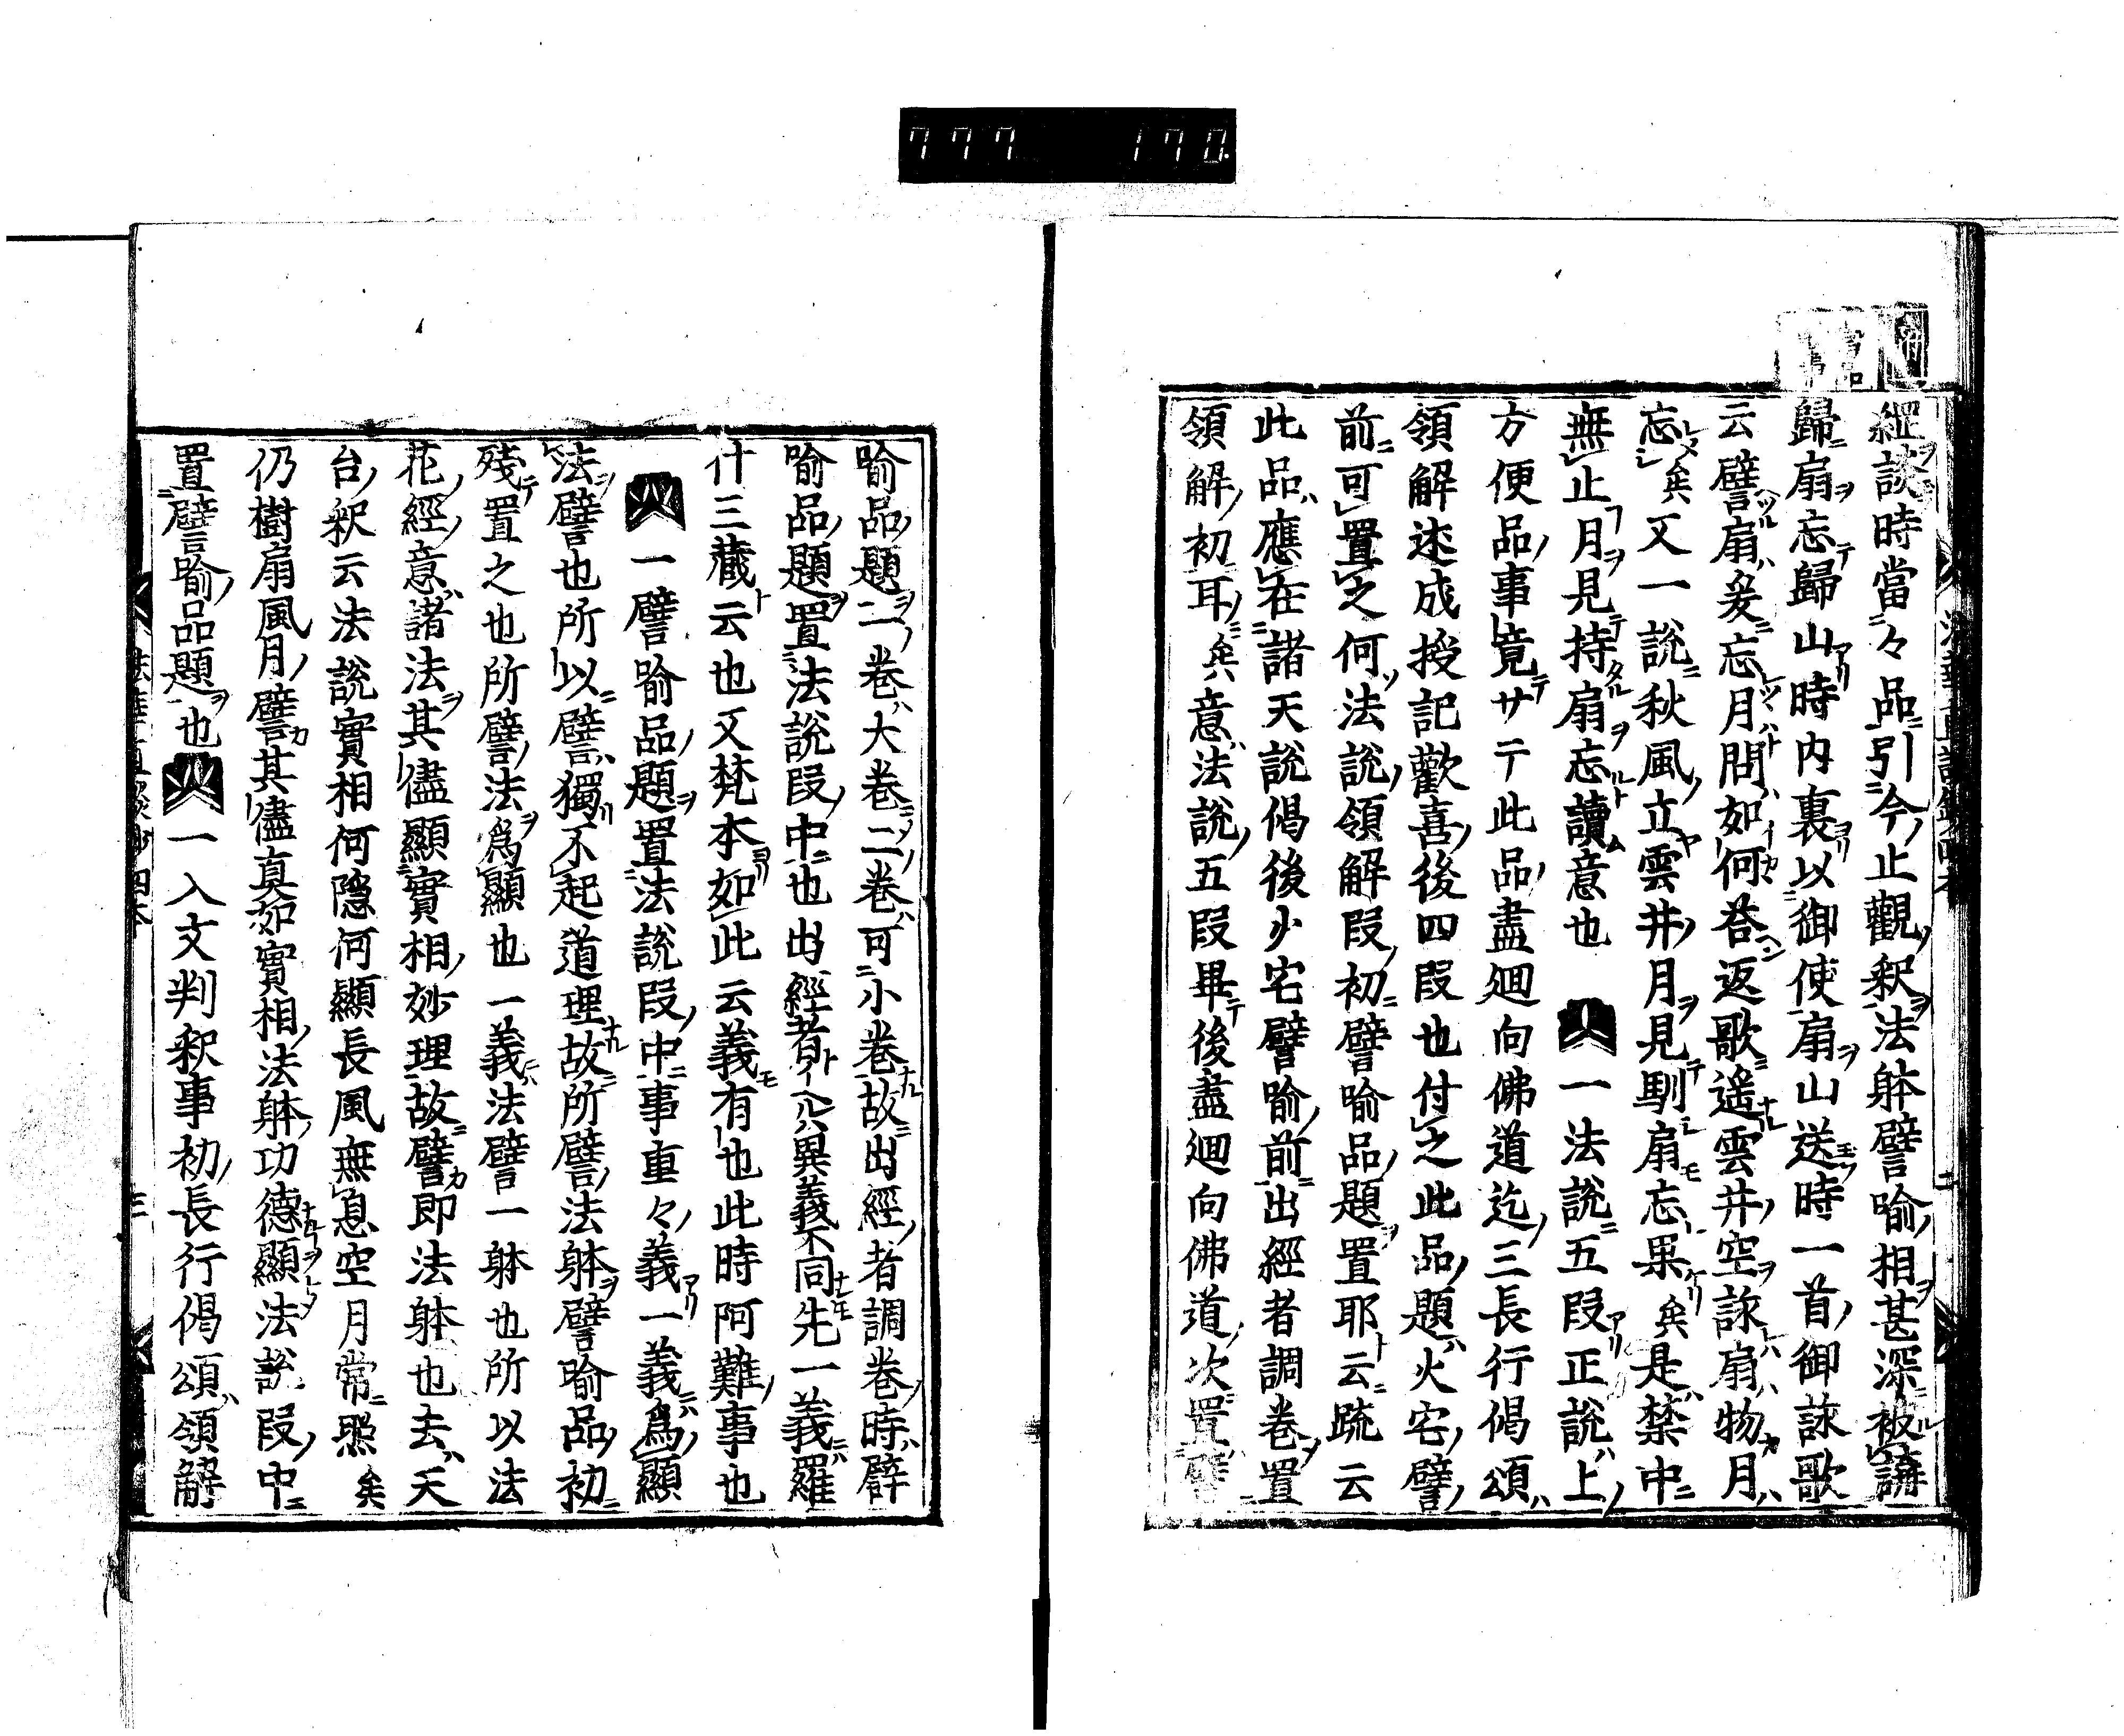 777 170
經談時當々品引今止觀釈法躰譬喻相甚深被講
歸扇忘歸山時内裏以御使扇山送時一首御詠歌
云譬扇爰忘月問如何荅返歌遙雲井空詠扇物月
忘矣又一說秋風立雲井月見馴扇忘果矣是禁中
無止月見持扇忘讀意也 一法說五叚正說上
方便品事竟サテ此品盡廻向佛道迄三長行偈頌
領解述成授記歡喜後四叚也付之此品題火宅譬
前可置之何法說領解叚初譬喻品題置耶云䟽云
此品應在諸天說偈後少宅譬喻前出經者調卷置
領解初耳矣意法說五叚畢後盡廻向佛道次置譬
喻品題二卷大卷二卷可小卷故出經者調卷時譬
喻品題置法說叚中也出經者異義不同先一義羅
什三藏云也又梵本如此云義有也此時阿難事也
一譬喻品題置法說叚中事重々義一義爲顯
法譬也所以譬獨不起道理故所譬法躰譬喻品初
殘置之也所譬法爲顯也一義法譬一躰也所以法
花經意諸法其儘顯實相妙理故譬即法躰也去天
台釈云法說實相何隱何顯長風無息空月常照矣
仍樹扇風月譬其儘真如實相法躰功德顯法說叚中
置譬喻品題也 一入文判釈事初長行偈頌領解